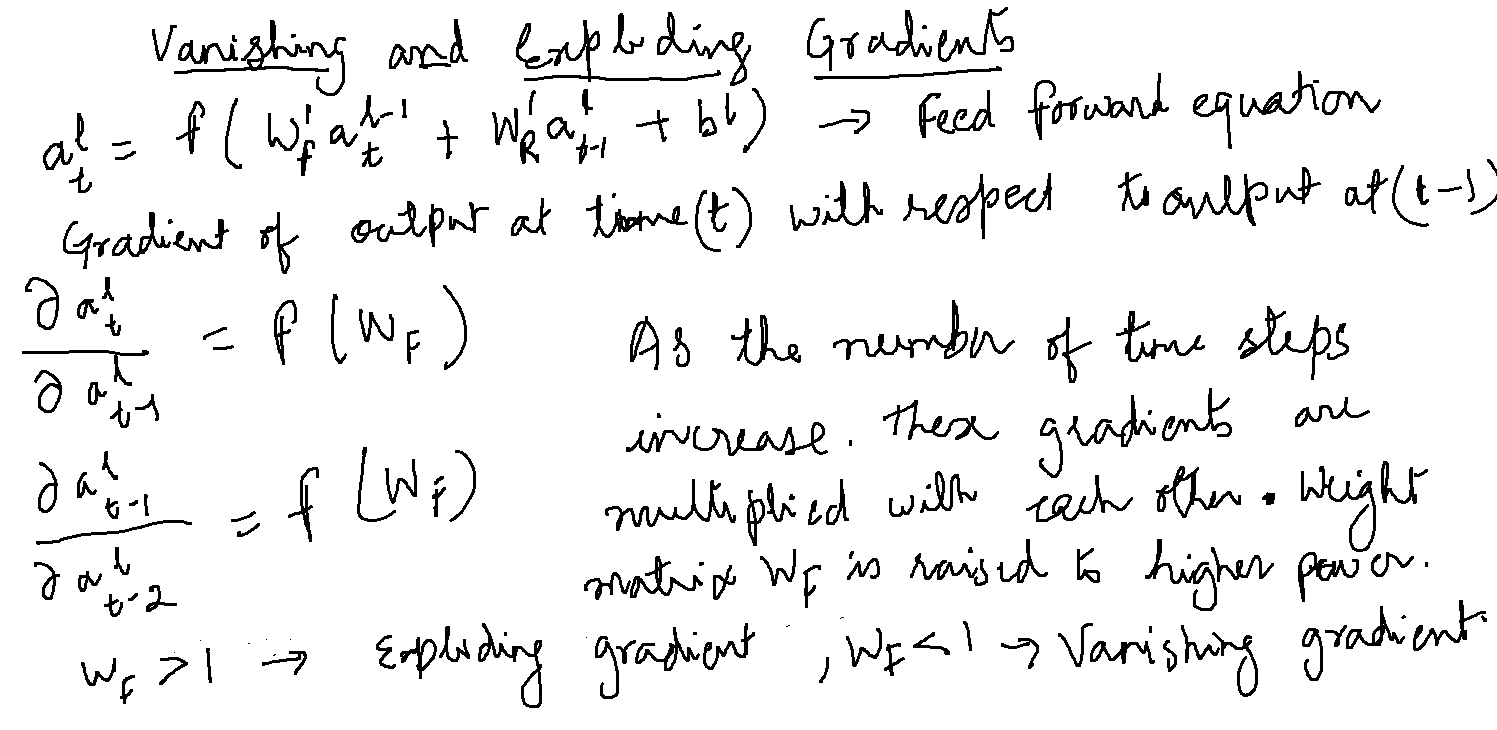 Vanishing and Exploding Gradients
a_t^l = f(W_f^l a_t^{l-1} + W_R^l a_{t-1}^l + b^l) → Feed forward equation
Gradient of output at time(t) with respect to output at (t-1)
∂a_t^l / ∂a_{t-1}^l = f(W_F)
As the number of time steps
increase. These gradients are
∂a_{t-1}^l / ∂a_{t-2}^l = f(W_F)
multiplied with each other. Weight
matrix W_F is raised to higher power.
W_F > 1 → Exploding gradient, W_F < 1 → Vanishing gradient